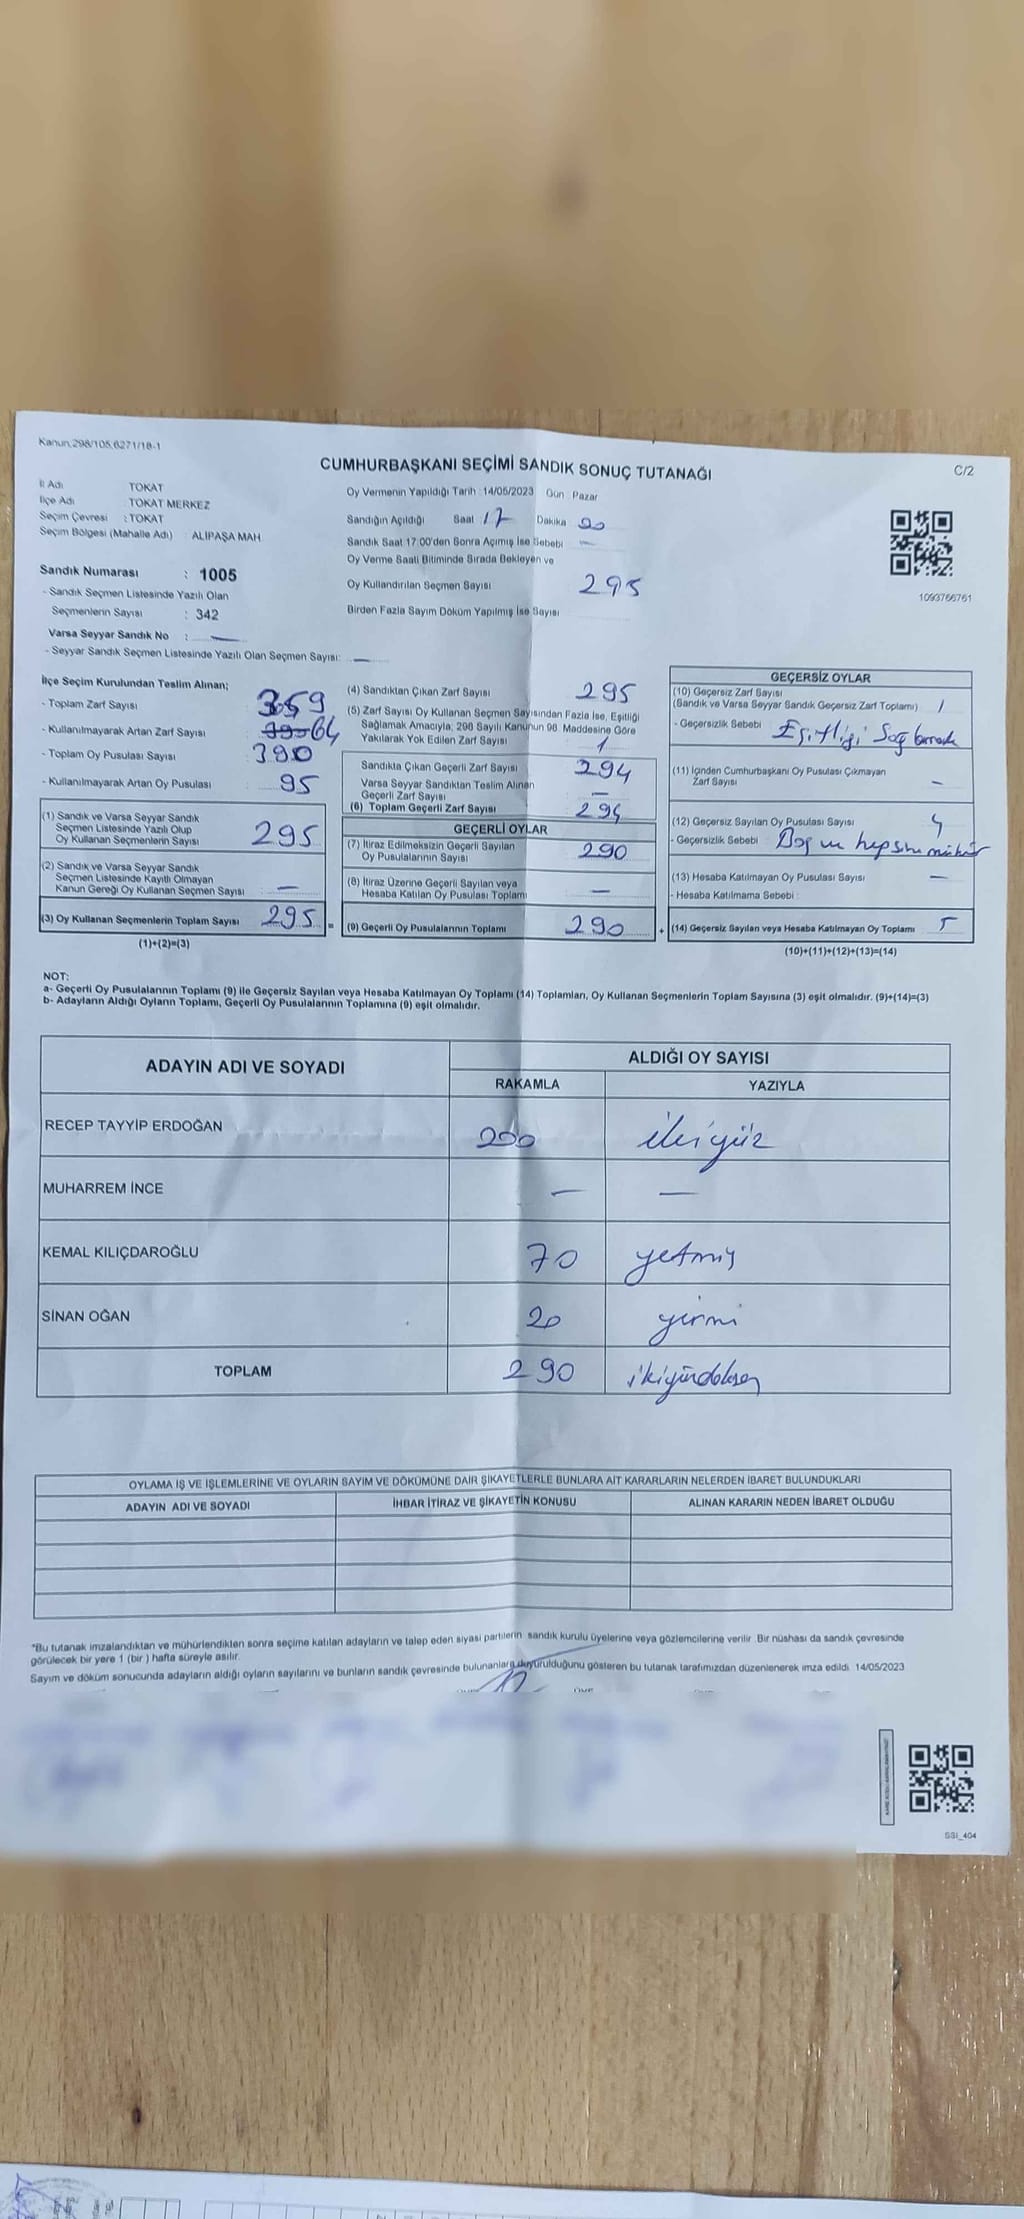 Kanun,298/105,6271/18-1
CUMHURBAŞKANI SEÇİMİ SANDIK SONUÇ TUTANAĞI
C/2
İl Adı TOKAT
İlçe Adı TOKAT MERKEZ
Seçim Çevresi : TOKAT
Seçim Bölgesi (Mahalle Adı) : ALİPAŞA MAH.
Sandık Numarası : 1005
- Sandık Seçmen Listesinde Yazılı Olan
Seçmenlerin Sayısı : 342
Varsa Seyyar Sandık No : —
- Seyyar Sandık Seçmen Listesinde Yazılı Olan Seçmen Sayısı: —
Oy Vermenin Yapıldığı Tarih :14/05/2023 Gün : Pazar
Sandığın Açıldığı Saat 17 Dakika 20
Sandık Saat 17:00'den Sonra Açımış İse Sebebi —
Oy Verme Saati Bitiminde Sırada Bekleyen ve
Oy Kullandırılan Seçmen Sayısı 295
Birden Fazla Sayım Döküm Yapılmış İse Sayısı
1093766761
İlçe Seçim Kurulundan Teslim Alınan;
- Toplam Zarf Sayısı 359
- Kullanılmayarak Artan Zarf Sayısı 64
- Toplam Oy Pusulası Sayısı 390
- Kullanılmayarak Artan Oy Pusulası 95
(1) Sandık ve Varsa Seyyar Sandık
Seçmen Listesinde Yazılı Olup
Oy Kullanan Seçmenlerin Sayısı 295
(2) Sandık ve Varsa Seyyar Sandık
Seçmen Listesinde Kayıtlı Olmayan
Kanun Gereği Oy Kullanan Seçmen Sayısı —
(3) Oy Kullanan Seçmenlerin Toplam Sayısı 295 =
(1)+(2)=(3)
(4) Sandıktan Çıkan Zarf Sayısı 295
(5) Zarf Sayısı Oy Kullanan Seçmen Sayısından Fazla İse, Eşitliği
Sağlamak Amacıyla, 298 Sayılı Kanunun 98. Maddesine Göre
Yakılarak Yok Edilen Zarf Sayısı 1
Sandıkta Çıkan Geçerli Zarf Sayısı 294
Varsa Seyyar Sandıktan Teslim Alınan
Geçerli Zarf Sayısı —
(6) Toplam Geçerli Zarf Sayısı 294
GEÇERLİ OYLAR
(7) İtiraz Edilmeksizin Geçerli Sayılan
Oy Pusulalarının Sayısı 290
(8) İtiraz Üzerine Geçerli Sayılan veya
Hesaba Katılan Oy Pusulası Toplamı —
(9) Geçerli Oy Pusulalarının Toplamı 290 +
GEÇERSİZ OYLAR
(10) Geçersiz Zarf Sayısı
(Sandık ve Varsa Seyyar Sandık Geçersiz Zarf Toplamı) 1
- Geçersizlik Sebebi Eşitliği
(11) İçinden Cumhurbaşkanı Oy Pusulası Çıkmayan
Zarf Sayısı —
(12) Geçersiz Sayılan Oy Pusulası Sayısı 4
- Geçersizlik Sebebi Boş ve hepsine mühür
(13) Hesaba Katılmayan Oy Pusulası Sayısı —
- Hesaba Katılmama Sebebi
(14) Geçersiz Sayılan veya Hesaba Katılmayan Oy Toplamı 5
(10)+(11)+(12)+(13)=(14)
NOT:
a- Geçerli Oy Pusulalarının Toplamı (9) ile Geçersiz Sayılan veya Hesaba Katılmayan Oy Toplamı (14) Toplamları, Oy Kullanan Seçmenlerin Toplam Sayısına (3) eşit olmalıdır. (9)+(14)=(3)
b- Adayların Aldığı Oyların Toplamı, Geçerli Oy Pusulalarının Toplamına (9) eşit olmalıdır.
ADAYIN ADI VE SOYADI ALDIĞI OY SAYISI
RAKAMLA YAZIYLA
RECEP TAYYİP ERDOĞAN 200 ikiyüz
MUHARREM İNCE — —
KEMAL KILIÇDAROĞLU 70 yetmiş
SİNAN OĞAN 20 yirmi
TOPLAM 290 ikiyüzdoksan
OYLAMA İŞ VE İŞLEMLERİNE VE OYLARIN SAYIM VE DÖKÜMÜNE DAİR ŞİKAYETLERLE BUNLARA AİT KARARLARIN NELERDEN İBARET BULUNDUKLARI
ADAYIN ADI VE SOYADI İHBAR İTİRAZ VE ŞİKAYETİN KONUSU ALINAN KARARIN NEDEN İBARET OLDUĞU
*Bu tutanak imzalandıktan ve mühürlendikten sonra seçime katılan adayların ve talep eden siyasi partilerin sandık kurulu üyelerine veya gözlemcilerine verilir. Bir nüshası da sandık çevresinde
görülecek bir yere 1 (bir ) hafta süreyle asılır.
Sayım ve döküm sonucunda adayların aldığı oyların sayılarını ve bunların sandık çevresinde bulunanlara duyurulduğunu gösteren bu tutanak tarafımızdan düzenlenerek imza edildi. 14/05/2023
SSI_404